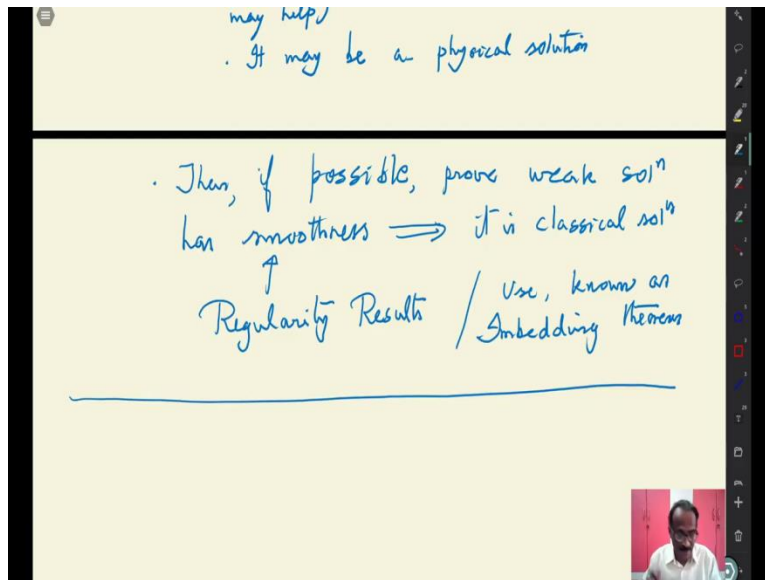 may help)
. It may be a physical solution
. Then, if possible, prove weak solⁿ
has smoothness ⟹ it is classical solⁿ
↑
Regularity Results / Use, known as
Imbedding theorems